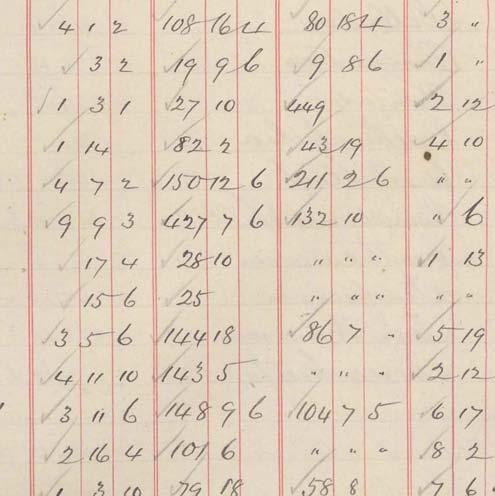 4 1 2 108 16 4 80 18 4 3 "
3 2 19 9 6 9 8 6 1 "
1 3 1 27 10 449 2 12
1 14 82 2 43 19 4 10
4 7 2 150 12 6 211 2 6 " "
9 9 3 427 7 6 132 10 " 6
17 4 28 10 " " " 1 13
15 6 25 " " " " "
3 5 6 144 18 86 7 " 5 19
4 11 10 143 5 " " " 2 12
3 11 6 148 9 6 104 7 5 6 17
2 16 4 101 6 " " " 8 2
1 3 10 79 18 58 8 7 6